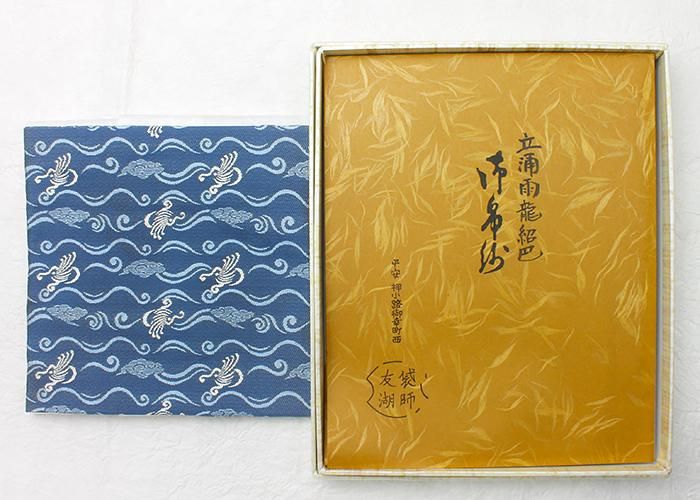 立涌雨龍絽巴
御帛紗
平安 押小路御幸町西
袋師
友湖